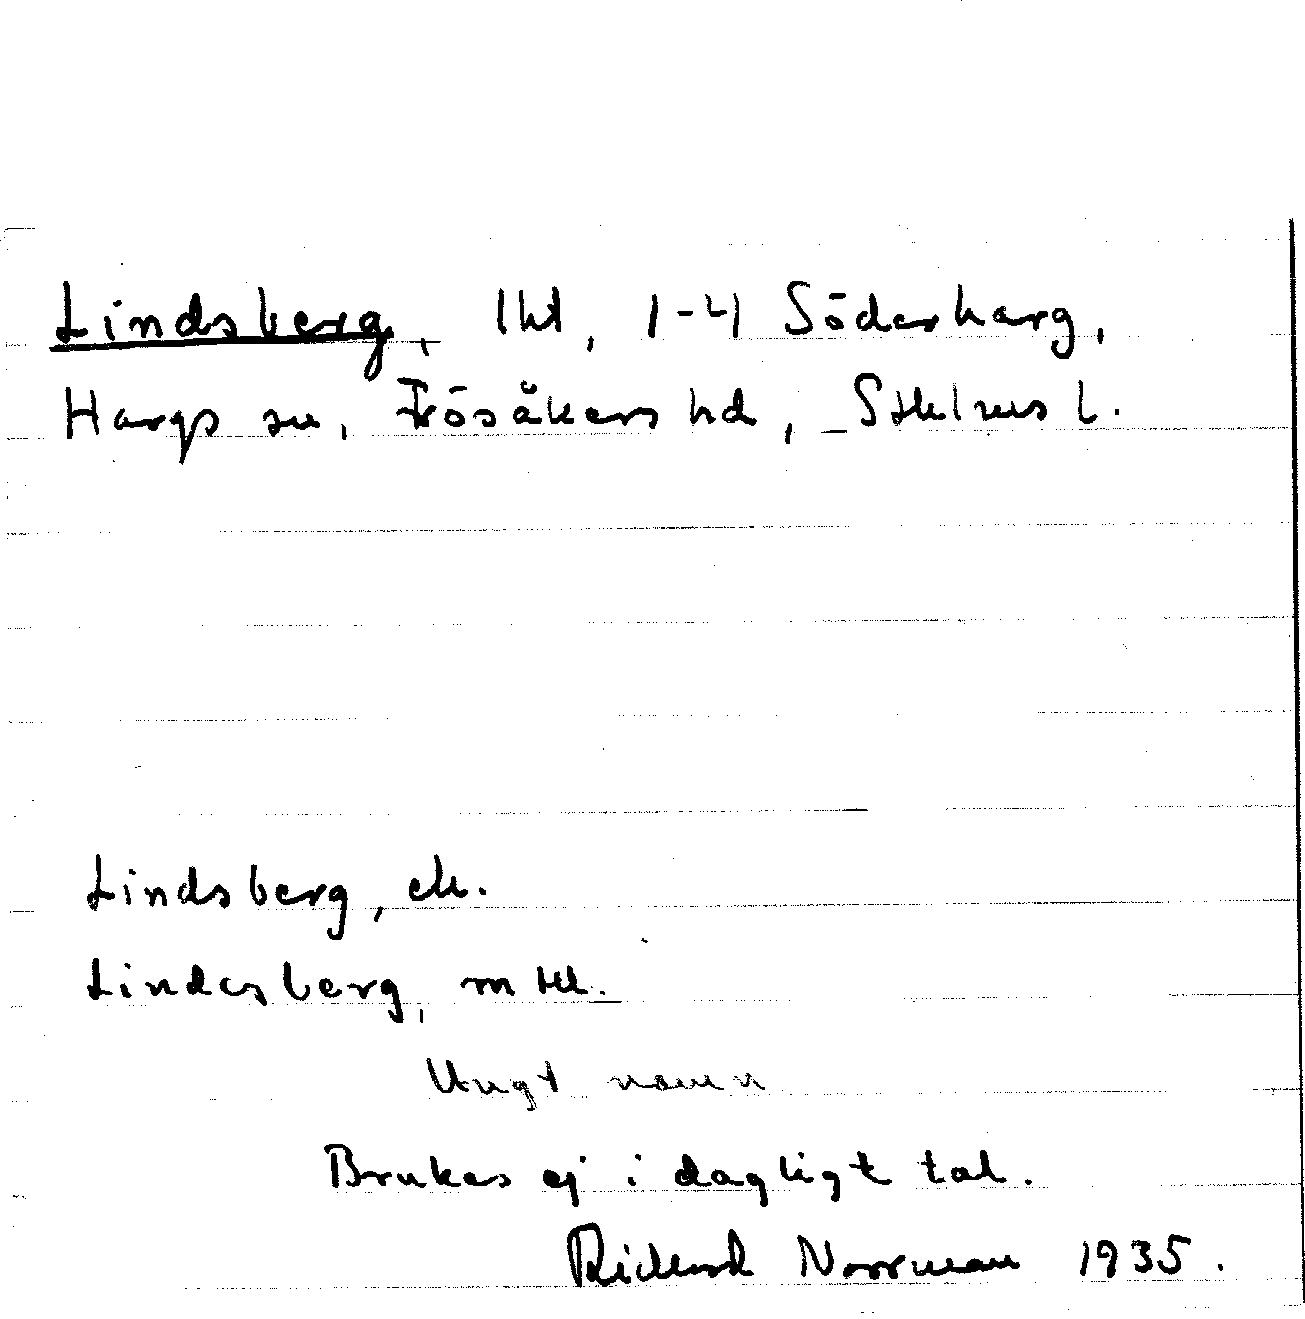 Lindsberg, lht, 1-4 Söderharg,
Hargs sn, Frösåkers hd, Sthlms l.
Lindsberg, ek.
Lindesberg, mtl.
Ungt namn
Brukas ej i dagligt tal.
Rickard Norrman 1935.